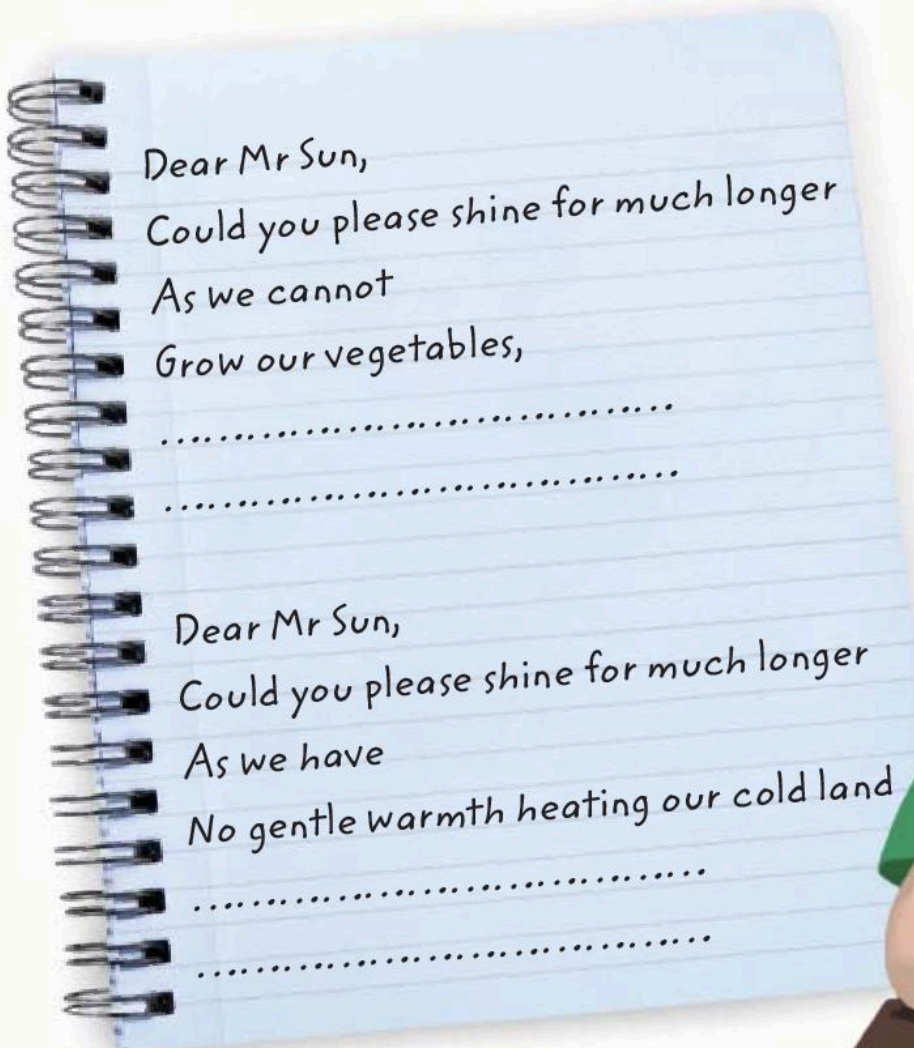 Dear Mr Sun,
Could you please shine for much longer
As we cannot
Grow our vegetables,
......................................
......................................
Dear Mr Sun,
Could you please shine for much longer
As we have
No gentle warmth heating our cold land
......................................
......................................